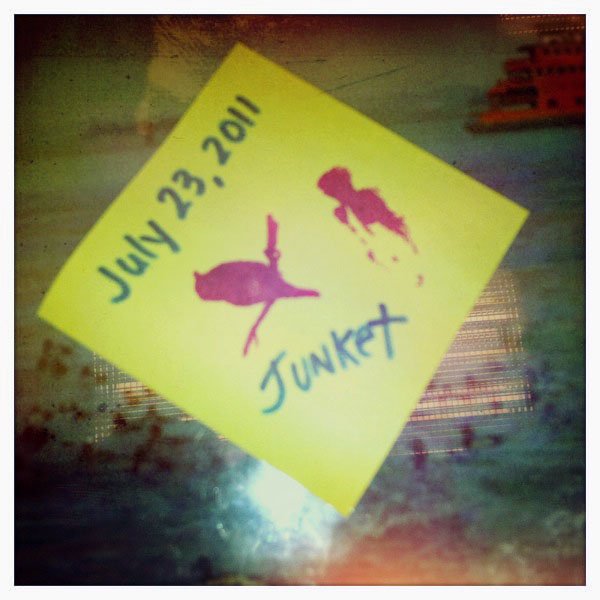 July 23, 2011
JUNKet